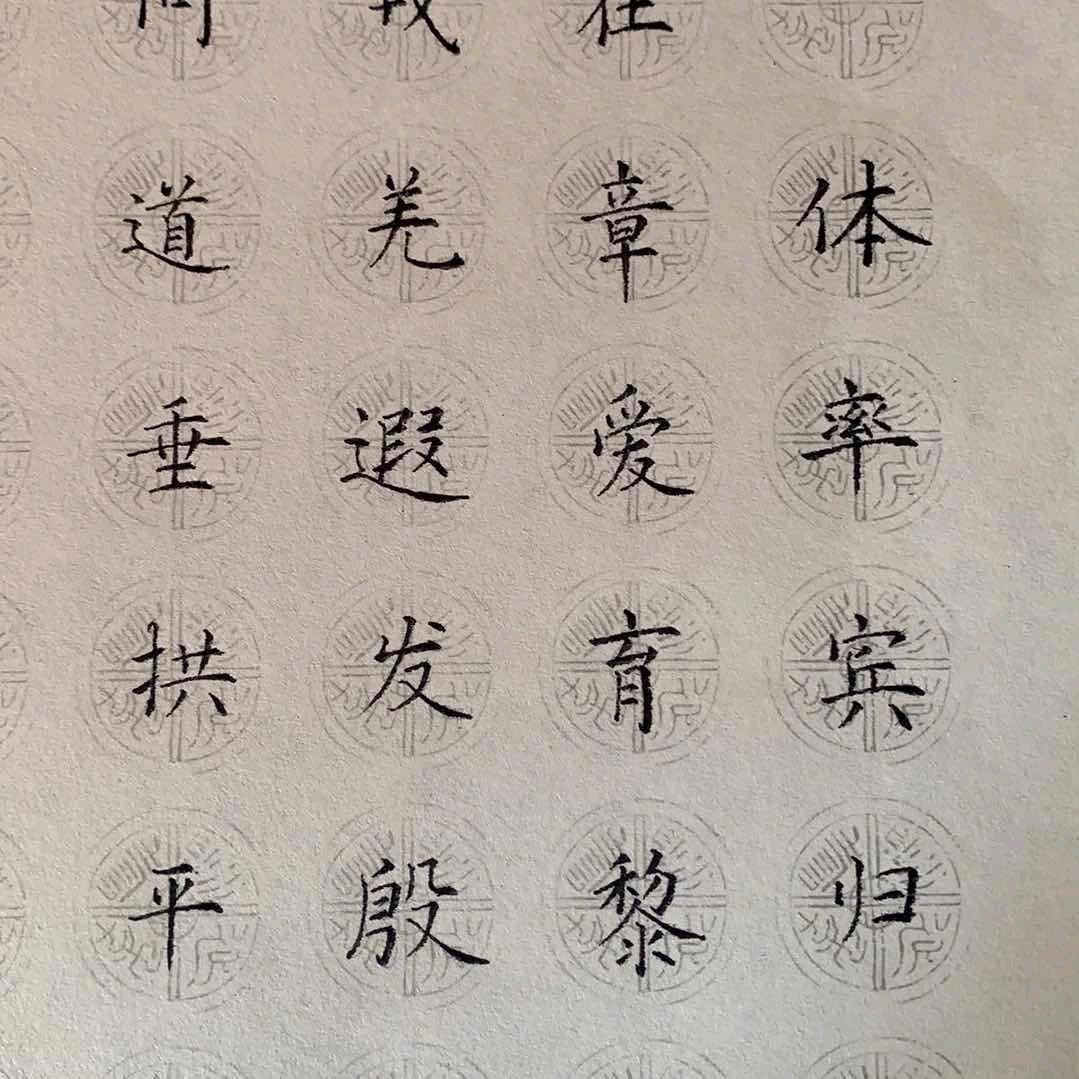 体率宾归
在章爱育黎
羌遐发殷
问道垂拱平